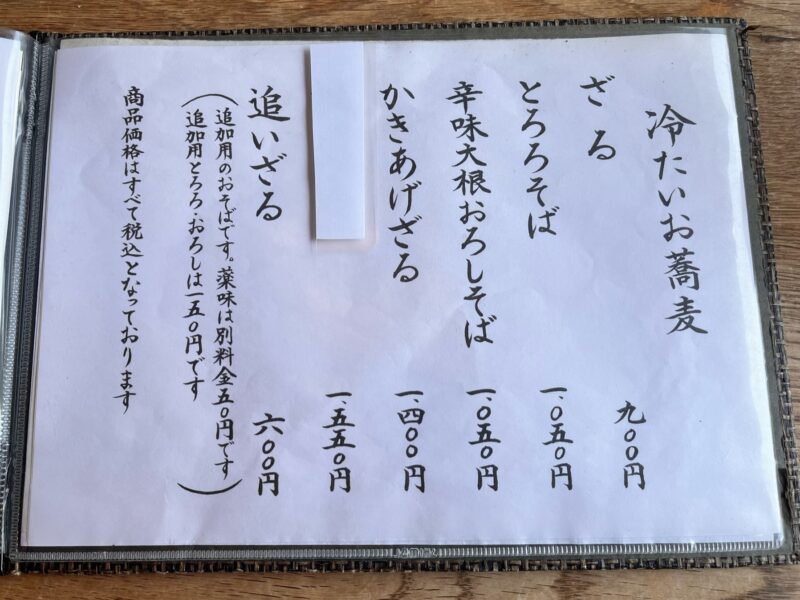 冷たいお蕎麦
ざる 九〇〇円
とろろそば 一、〇五〇円
辛味大根おろしそば 一、〇五〇円
かきあげざる 一、四〇〇円
一、五五〇円
追いざる 六〇〇円
(追加用のおそばです。薬味は別料金五〇円です
追加用とろろ・おろしは一五〇円です)
商品価格はすべて税込となっております